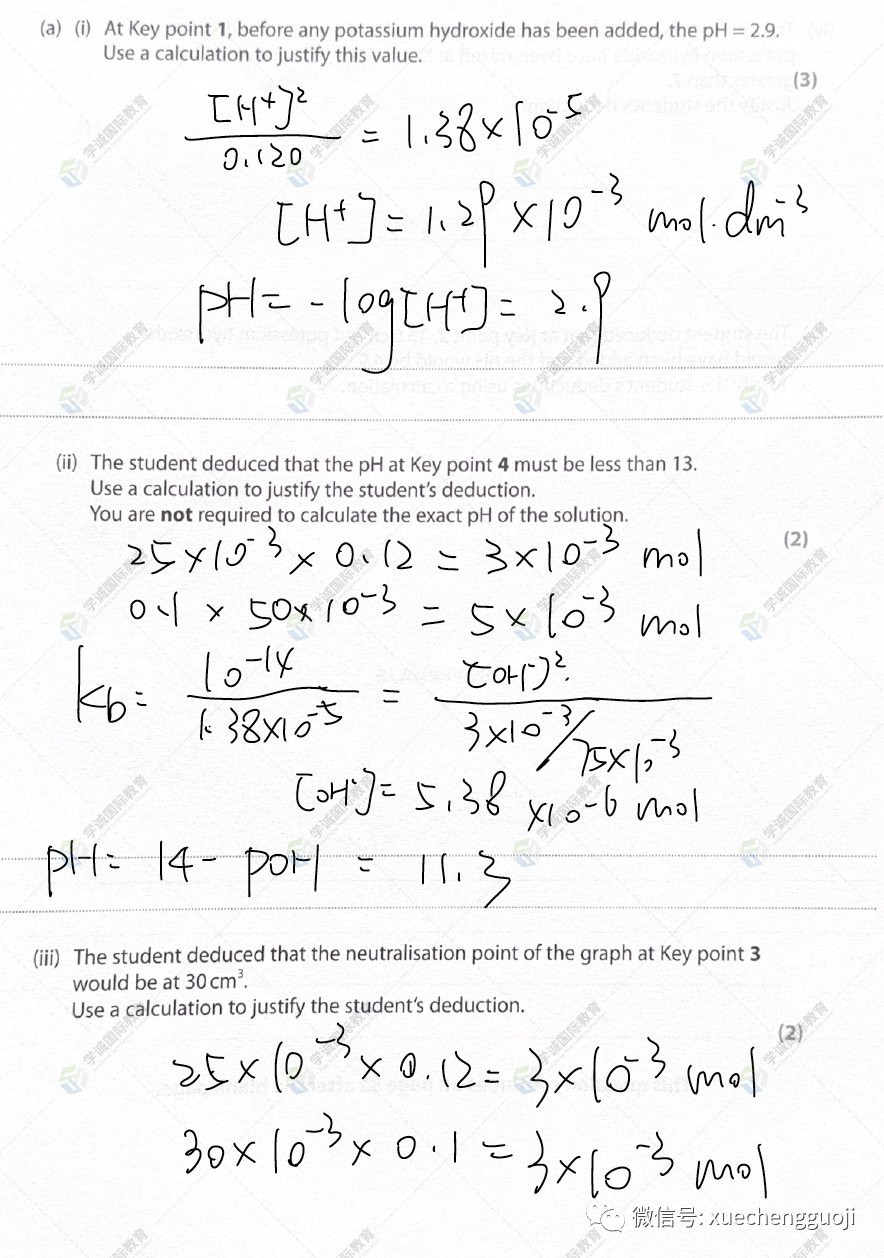 (a) (i) At Key point 1, before any potassium hydroxide has been added, the pH = 2.9.
Use a calculation to justify this value.
(3)
[H+]²
0.120
= 1.38×10⁻⁵
[H+] = 1.29 ×10⁻³ mol·dm⁻³
pH = - log[H+] = 2.9
(ii) The student deduced that the pH at Key point 4 must be less than 13.
Use a calculation to justify the student's deduction.
You are not required to calculate the exact pH of the solution.
(2)
25×10⁻³ × 0.12 = 3×10⁻³ mol
0.1 × 50×10⁻³ = 5×10⁻³ mol
Kb = 10⁻¹⁴ / 1.38×10⁻⁵ = [OH⁻]² / 3×10⁻³/75×10⁻³
[OH⁻] = 5.38 ×10⁻⁶ mol
pH = 14 - pOH = 11.3
(iii) The student deduced that the neutralisation point of the graph at Key point 3
would be at 30 cm³.
Use a calculation to justify the student's deduction.
(2)
25×10⁻³ × 0.12 = 3×10⁻³ mol
30×10⁻³ × 0.1 = 3×10⁻³ mol
学诚国际教育
微信号: xuechengguoji